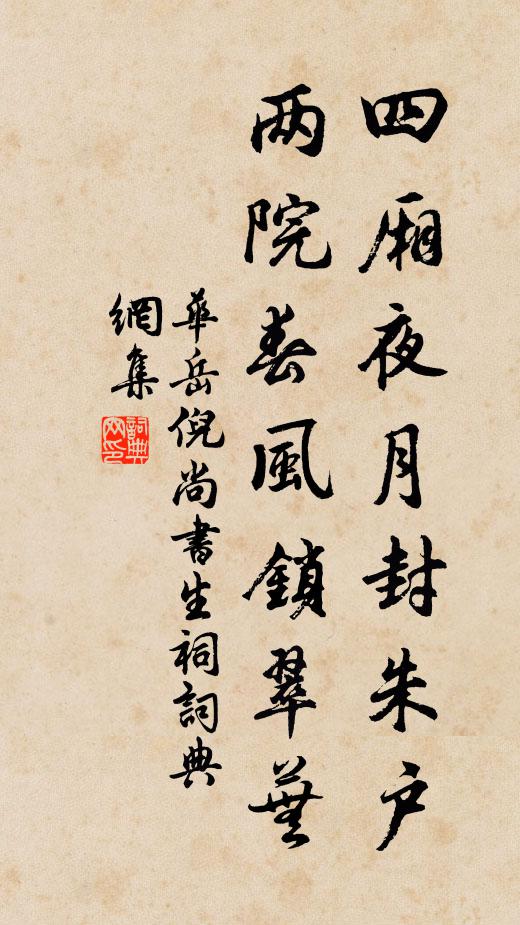 四厢夜月封朱户
两院春風鎖翠蕪
華岳倪尚書生祠詞典
網集
詞典
网印